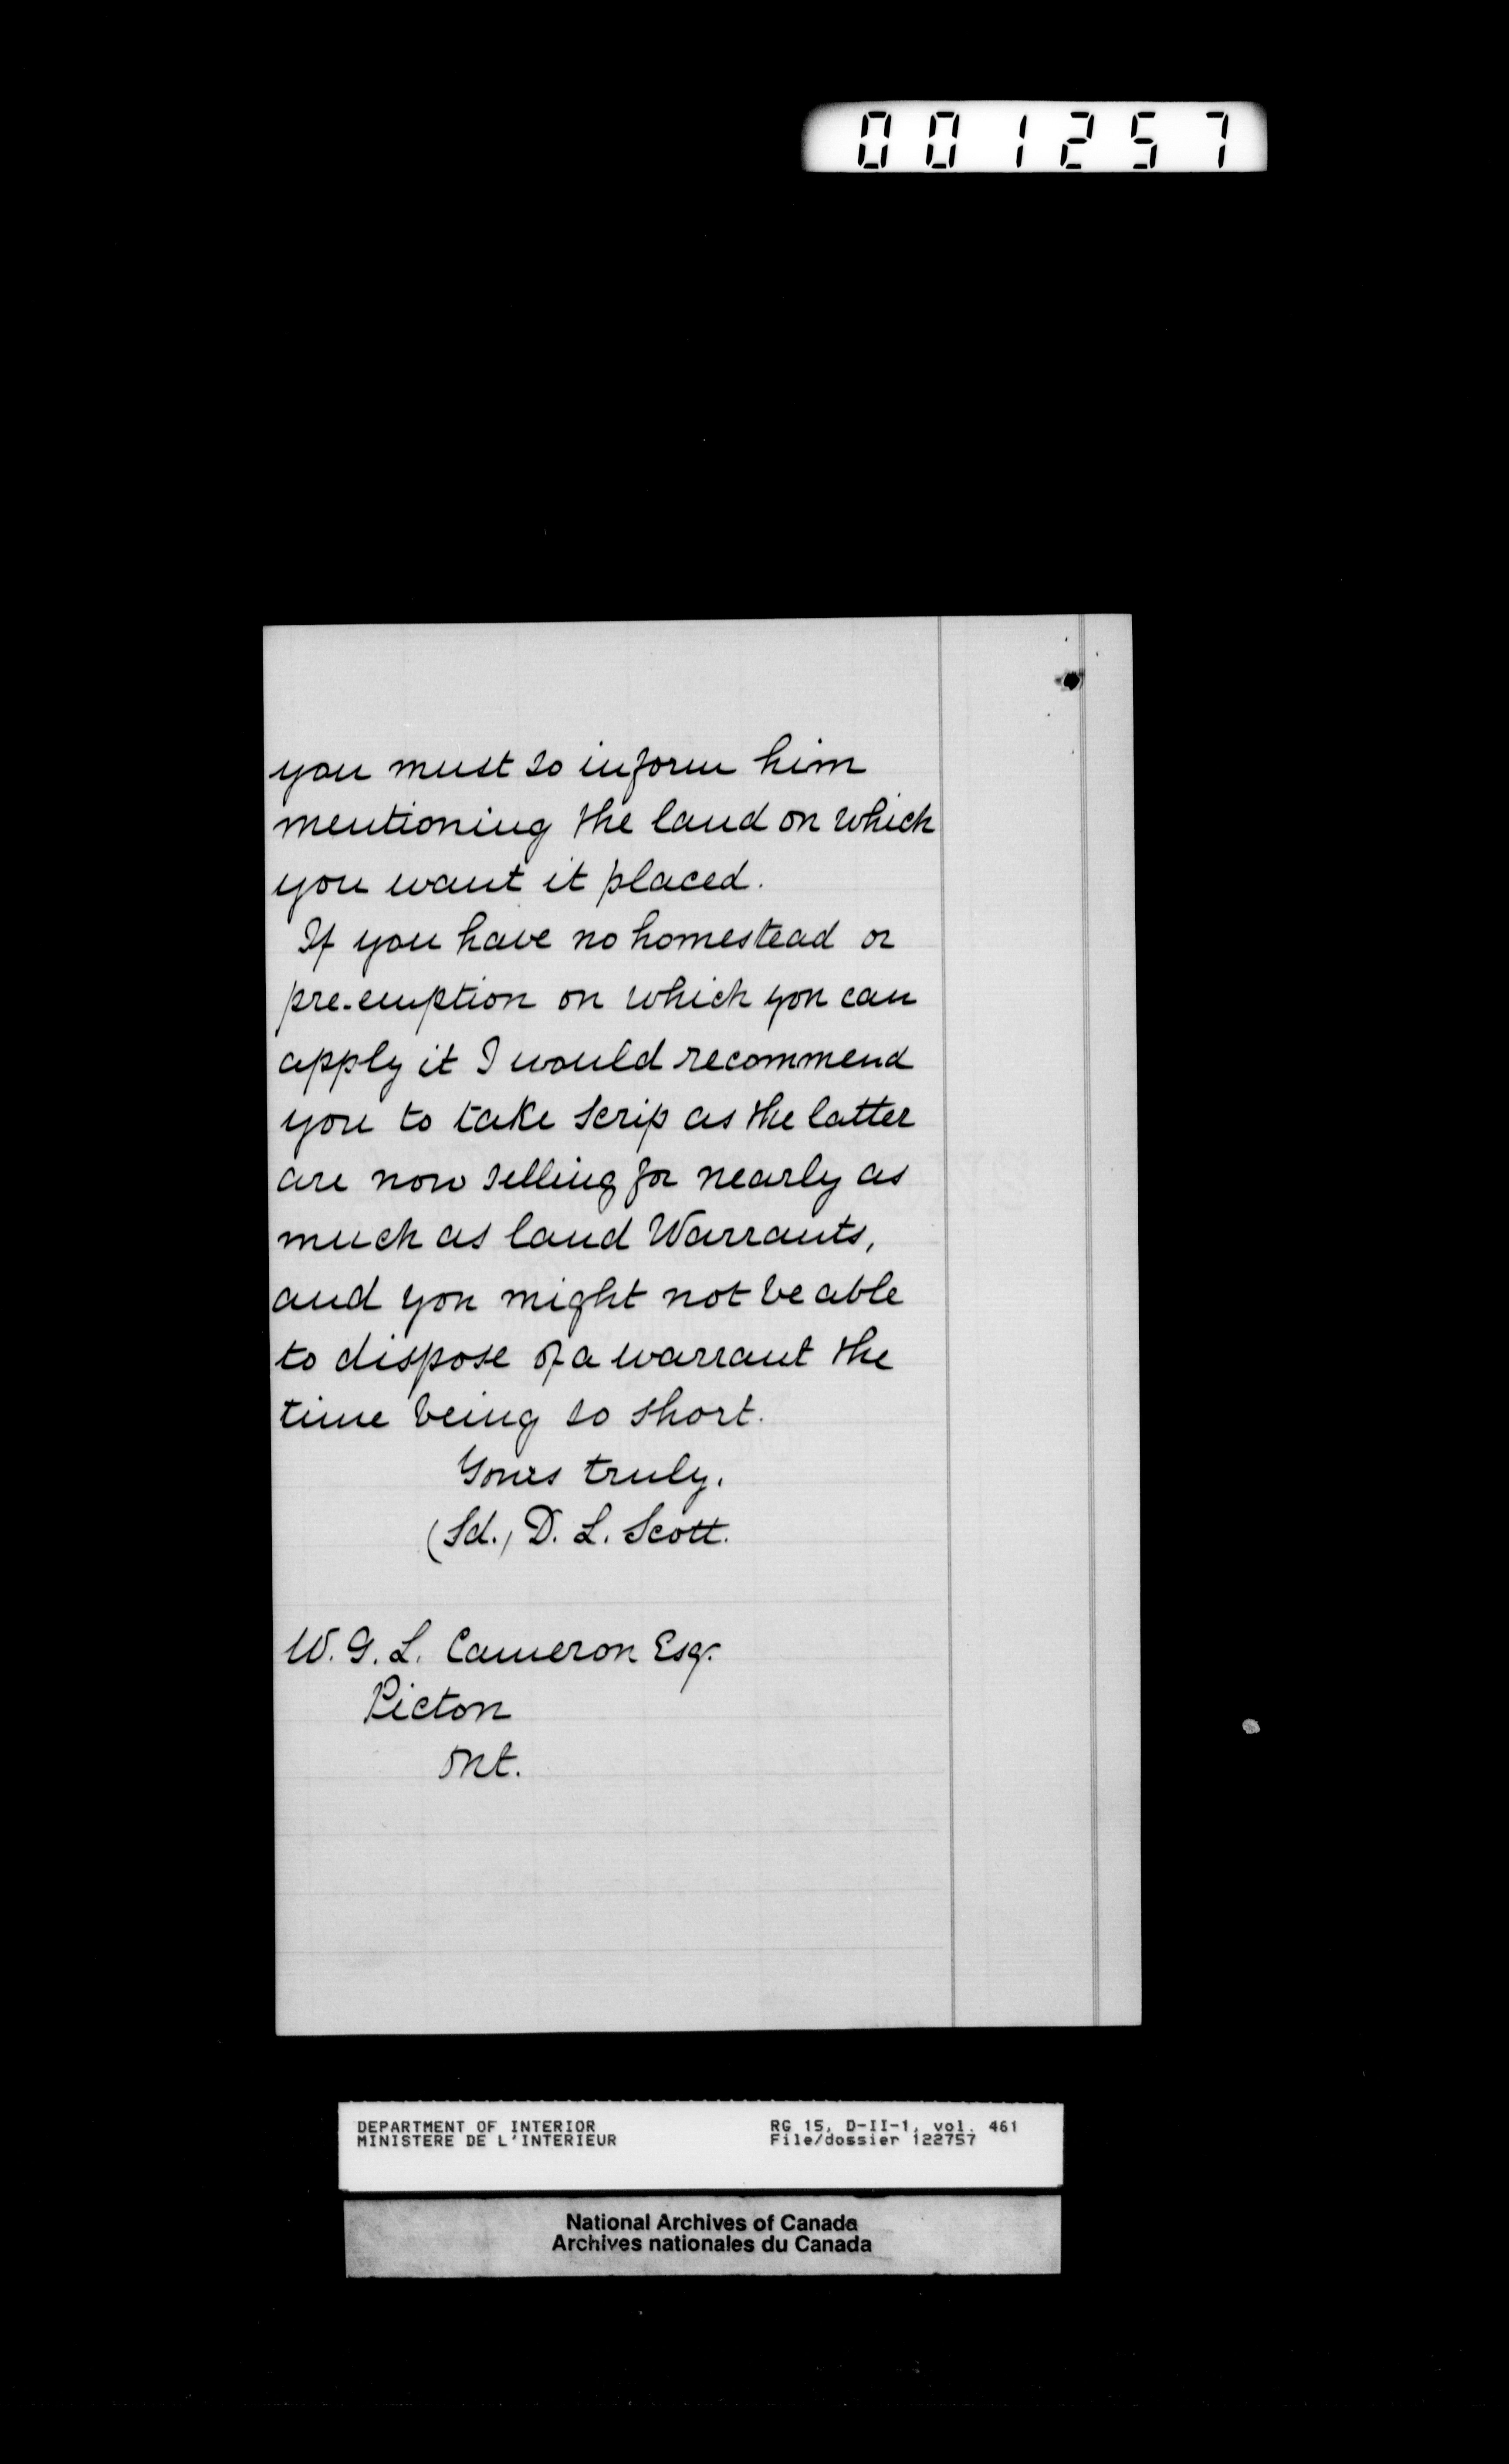 001257
you must so inform him
mentioning the land on which
you want it placed.
If you have no homestead or
pre-emption on which you can
apply it I would recommend
you to take scrip as the latter
are now selling for nearly as
much as land Warrants,
and you might not be able
to dispose of a warrant the
time being so short.
Yours truly.
(Sd.) D. L. Scott.
W. G. L. Cameron Esq.
Picton
Ont.
DEPARTMENT OF INTERIOR RG 15, D-II-1, vol. 461
MINISTERE DE L'INTERIEUR File/dossier 122757
National Archives of Canada
Archives nationales du Canada